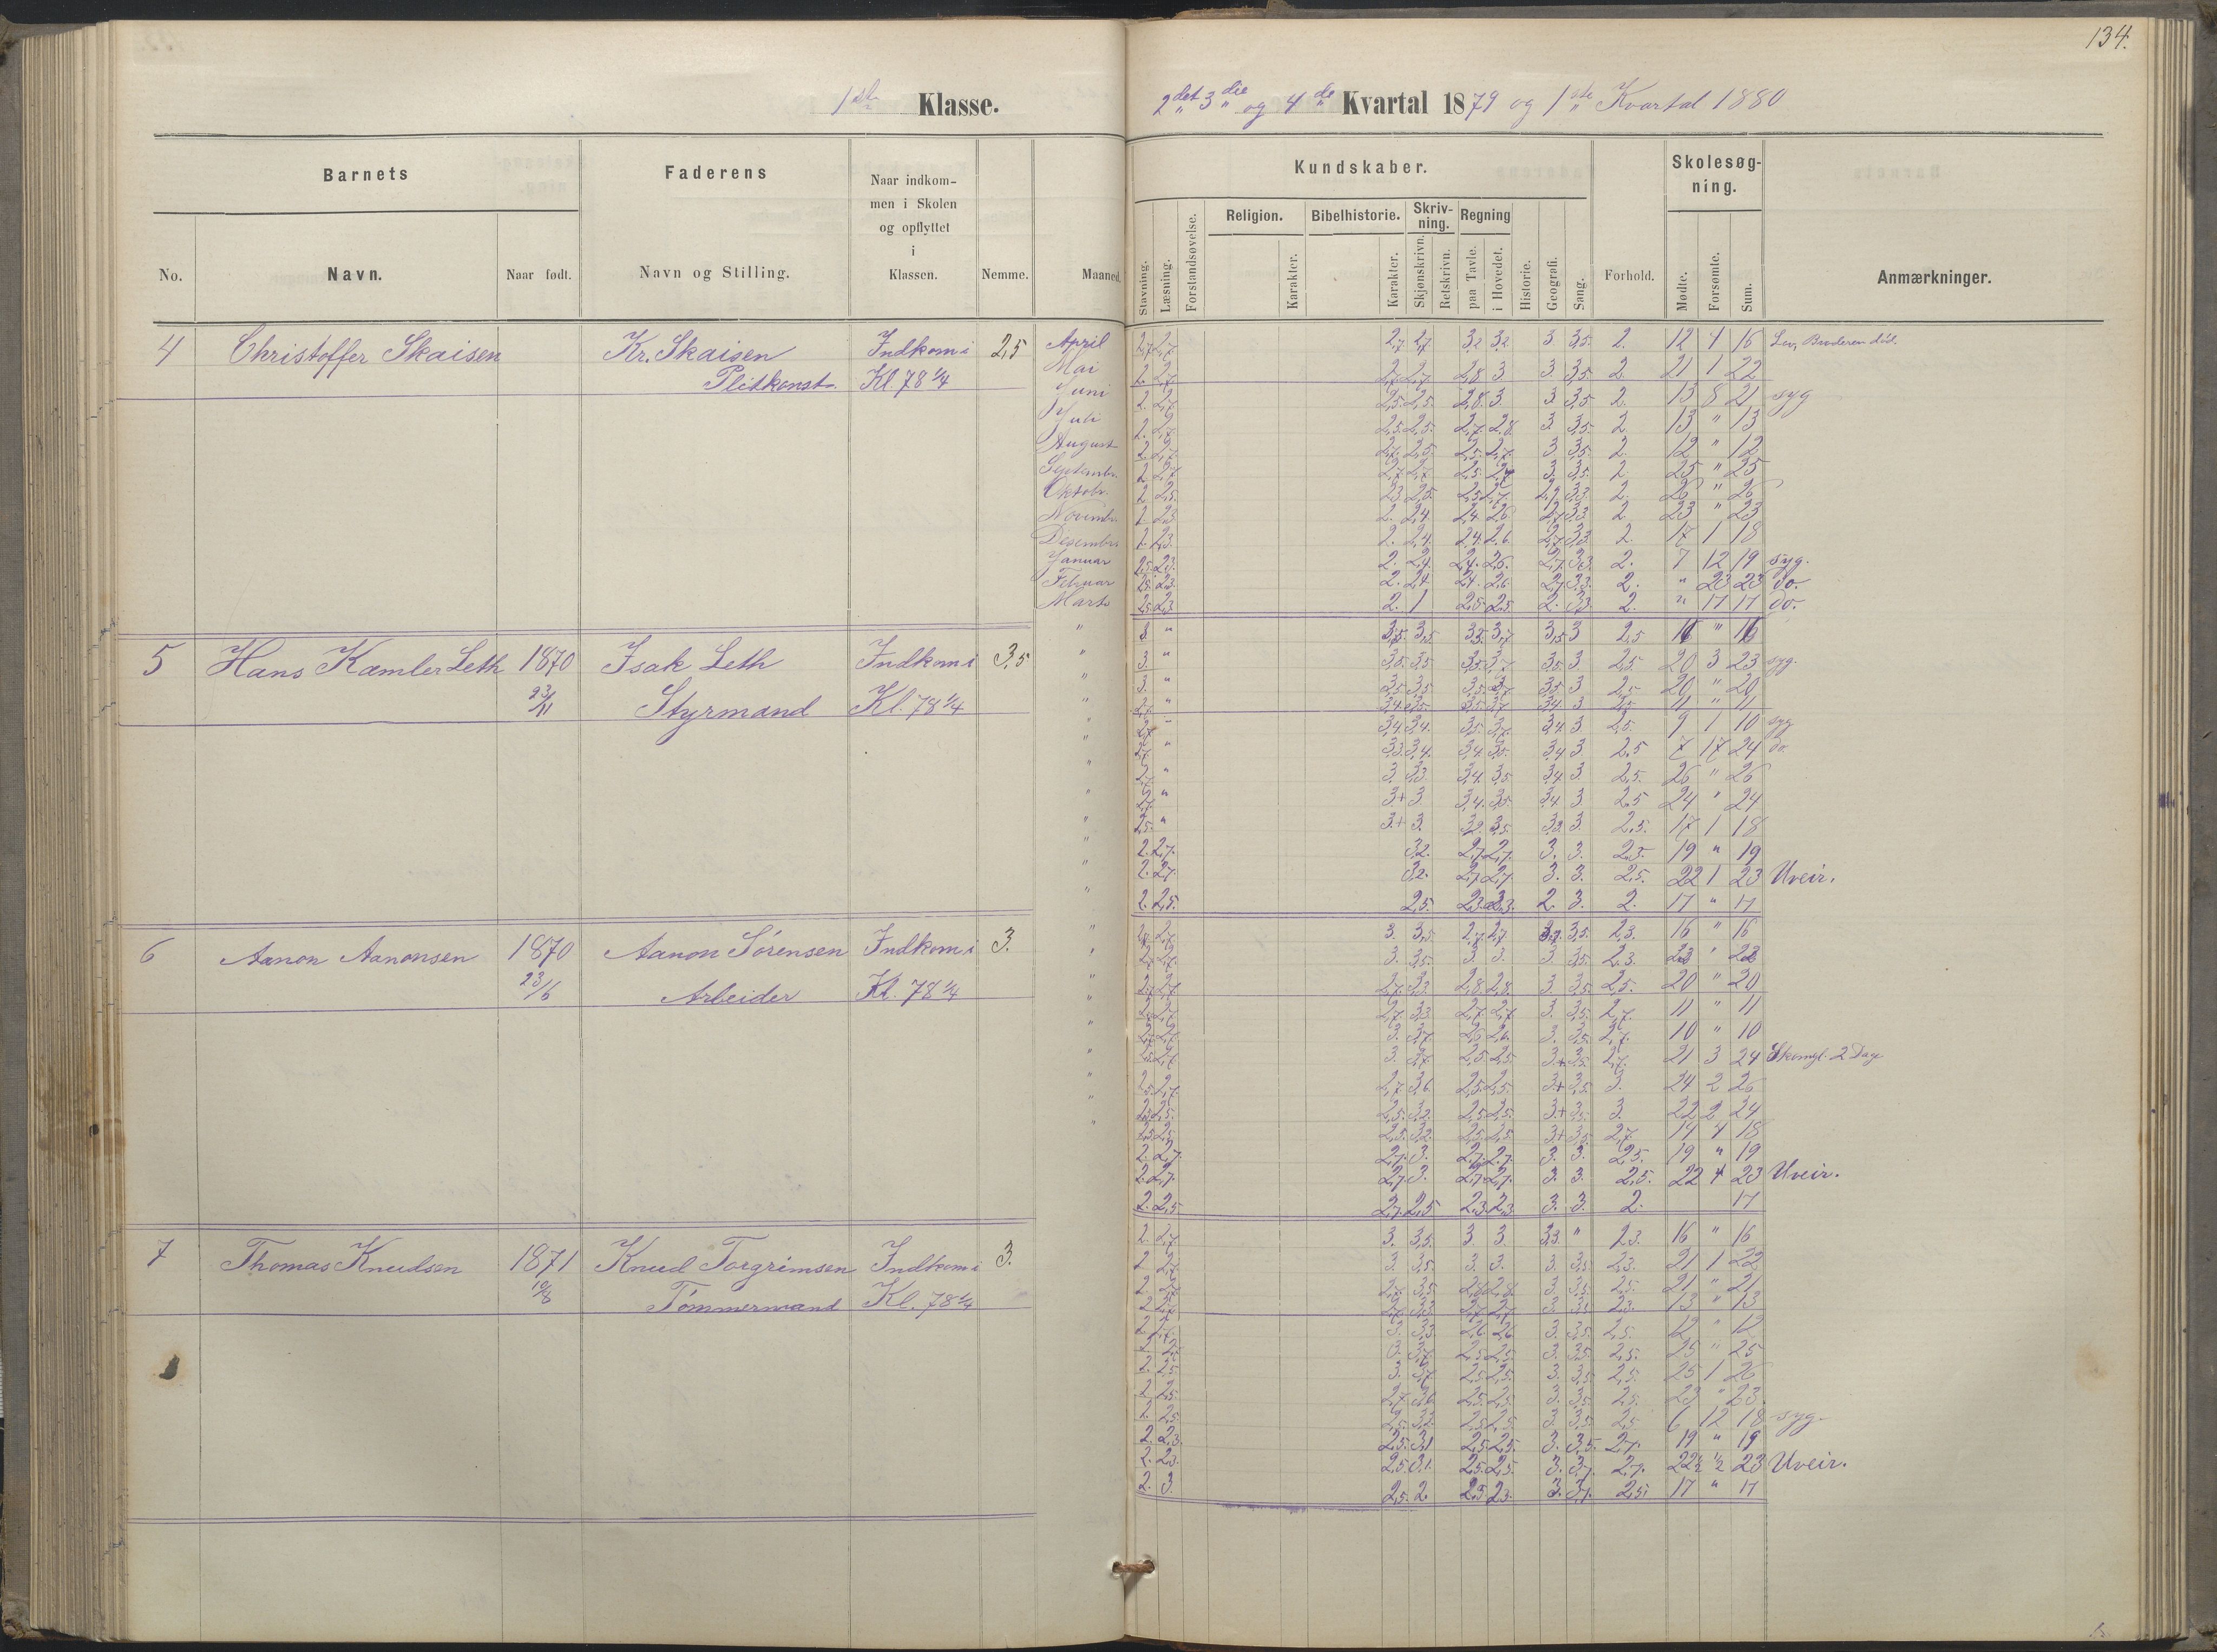 134.
1ste Klasse.
2det 3die og 4de Kvartal 1879 og 1ste Kvartal 1880
Barnets
Faderens
Naar indkommen i Skolen og opflyttet i Klassen.
Nemme.
Maaned.
No.
Navn.
Naar født.
Navn og Stilling.
Kundskaber.
Stavning.
Læsning.
Forstandsøvelse.
Religion.
Karakter.
Bibelhistorie.
Karakter.
Skrivning.
Skjønskrivn.
Retskrivn.
Regning
paa Tavle.
i Hovedet.
Historie.
Geografi.
Sang.
Forhold.
Skolesøgning.
Mødte.
Forsømte.
Sum.
Anmærkninger.
4 Christoffer Skaisen Kr. Skaisen Indkom i 2,5
Kl. 78 1/4
April 2,7 2,7 3,2 3,2 3. 3,5 2. 12 4 16
Mai 2. 2,7 2,7 2,7 2,8 3 3. 3,5. 2. 21 1 22
Juni 2. 2,7 2,5. 2,5. 2,8. 3. 3 3,5 2. 13 8 21 syg
Juli 2. 2,7 2,5. 2,5. 2,7. 2,8. 3 3,5. 2. 13 " 13
August 2. 2,7 2,7. 2,5. 2,5. 2,7. 3 3,5. 2. 12 " 12
Septembr. 2. 2,7 2,7 2,7 2,5. 2,7 3. 3,5. 2. 25 " 25
Oktobr. 2. 2,5. 2. 26 " 26
Novembr. 2. 2,4. 2,4. 2,6. 2,7 3,3. 2. 23 " 23
Desembr. 2. 2,3. 2. 2,4. 2,4. 2,6. 2,7 3,3. 2. 17 1 18
Januar 2,5. 2,3. 2. 2,4. 2,4. 2,6. 2,7. 3,3. 2. 7 12 19 syg.
Februar 2,5. 2,3. 2. 2,4. 2,4. 2,6. 2,7 3,3. 2. " 23 23 do.
Marts 2,5. 2,3 2. 1 2,5. 2,5 2. 3,3. 2. " 17 17 do.
5 Hans Kamler Leth 1870 Isak Leth Indkom i 3,5
23/11 Styrmand Kl. 78 1/4
3. " 3,5. 3,5 3,5. 3,7 3,5 3 2,5 16 " 16
3. " 3,5. 3,5 3,5. 3,7 3,5 3. 2,5. 20 3 23 syg.
3. " 3,5. 3,5 3,5. 3,7 3,5 3 2,5 20 " 20
3,4. 3,5 3,5 3,7 3,4 3 2,5 11 " 11
3,4. 3,4. 3,5. 3,7. 3,4 3. 2,5. 9 1 10 syg
3,3. 3,4. 3,4. 3,5. 3,4 3. 2,5 7 17 24 do.
3. 3,3. 3,4. 3,5 3,4 3. 2,5. 26 " 26
3+ 3 3,4. 3,5. 3,4 3. 2,5 24 " 24
2,5. " 3+ 3. 3,2. 3,5. 3,3. 3. 2,5. 17 1 18
2. 2,7. 3,2. 2,7. 2,7. 3. 3. 2,3. 19 " 19
2. 2,7. 3,2. 2,7. 2,7. 3. 3. 2,5. 22 1 23 Uveir.
2. 2,5. 2,5. 2,3. 2,3. 2. 3. 2. 17 " 17
6 Aanon Aanonsen 1870 Aanon Sørensen Indkom i 3.
23/6 Arbeider Kl. 78 1/4
3. 3,5. 2,7. 2,7 3,7. 3,5. 2,3. 16 " 16
3. 3,5. 3. 3. 3 3,5. 2,3.
2,7 2,7 2,7. 3,3. 2,8. 2,8. 3. 3,5. 2,5. 20 " 20
2,7. 3,3. 2,7. 2,7. 3. 3,5. 2,7. 11 " 11
3. 3,7. 2,6. 2,6. 3. 3,5. 2,7. 10 " 10
3. 3,7. 2,5. 2,5. 3+ 3,5. 2,7. 21 3 24 Skomgl. 2 Dage
2,7 3,6. 2,5. 2,5. 3+ 3,5. 3. 24 2 26
2,5. 3,2. 2,5. 2,5. 3+ 3,5. 3. 22 2 24
2,5. 3,2. 2,5. 2,5. 3+ 3,5. 2,7. 14 4 18
2. 2,7. 2,7. 3. 2,7. 2,7. 3. 3. 2,5. 19 " 19
2. 2,7. 2,7. 3. 2,7. 2,7. 3. 3. 2,5. 22 1 23 Uveir.
2. 2,5. 2,7. 2,5 2,3. 2,3. 3. 3. 2. 17
7 Thomas Knudsen 1871 Knud Torgrimsen Indkom i 3.
10/8 Tømmermand Kl. 78 1/4
2. 2,7 3. 3,5. 3 3. 3,3. " 2,3. 16 " 16
2 2,7 3. 3,5 3. 3. 3. 3,5. 2,3. 21 1 22
2 2,7 2,7. 3,5 2,8. 2,8. 3 3,5. 2,5. 21 " 21
2 2,7 2,7. 3,3. 2,7 2,7. 3 3,5 2,3. 13 " 13
2. 2,7. 3. 3,3. 2,6. 2,6. 3. 3,5. 2,5. 12 " 12
3. 3,7. 2,5. 2,5. 3. 3,5. 2,5. 25 " 25
2. 2,5 3. 3,7 2,5. 2,5. 3. 3,5 2,5. 25 1 26
2. 2,5. 2,7 3,6. 2,5. 2,5. 3. 3,5. 2,5. 23 " 23.
2. 2,5. 2,5. 3,2. 2,5. 2,5. 3. 3,5 2,5 6 12 18 syg.
2. 2,3. 2,5. 3,1 2,5. 2,5. 3. 3,5. 2,7. 19 " 19
2. 2,3. 2,5. 3,1. 2,5. 2,5. 3. 3,7. 2,7. 22½ ½ 23 Uveir.
2. 3. 2,5. 2. 2,3. 2,3. 3. 3,7. 2,5. 17 " 17